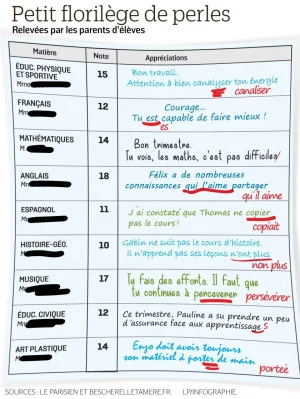 Petit florilège de perles
Relevées par les parents d'élèves
Matière Note Appréciations
ÉDUC. PHYSIQUE
ET SPORTIVE
Mme
15
Bon travail.
Attention à bien canalyser ton énergie
canaliser
FRANÇAIS
Mme
12
Courage...
Tu est capable de faire mieux !
es
MATHÉMATIQUES
M.
14
Bon trimestre.
Tu vois, les maths, c'est pas difficiles
ANGLAIS
M
18
Félix a de nombreuses
connaissances qui l'aime partager
qu'il aime
ESPAGNOL
M
11
J'ai constaté que Thomas ne copier
pas le cours !
copiait
HISTOIRE-GÉO.
M
10
Gabin ne suit pas le cours d'histoire.
Il n'apprend pas ses leçons n'ont plus
non plus
MUSIQUE
M
17
Tu fais des efforts. Il faut que
tu continues à perceveren
persévérer
ÉDUC. CIVIQUE
M
12
Ce trimestre, Pauline a su prendre un peu
d'assurance face aux apprentissage
s
ART PLASTIQUE
M
14
Enzo doit avoir toujours
son matériel à porter de main
portée
SOURCES : LE PARISIEN ET BESCHERELLETAMERE.FR. LP/INFOGRAPHIE.